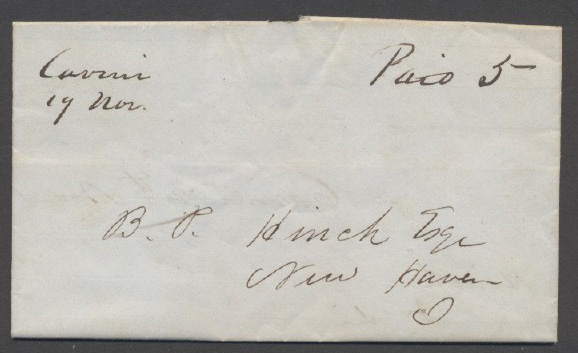 Cavini
19 Nov.
Paid 5
B. P. Hinch Esqr
New Haven